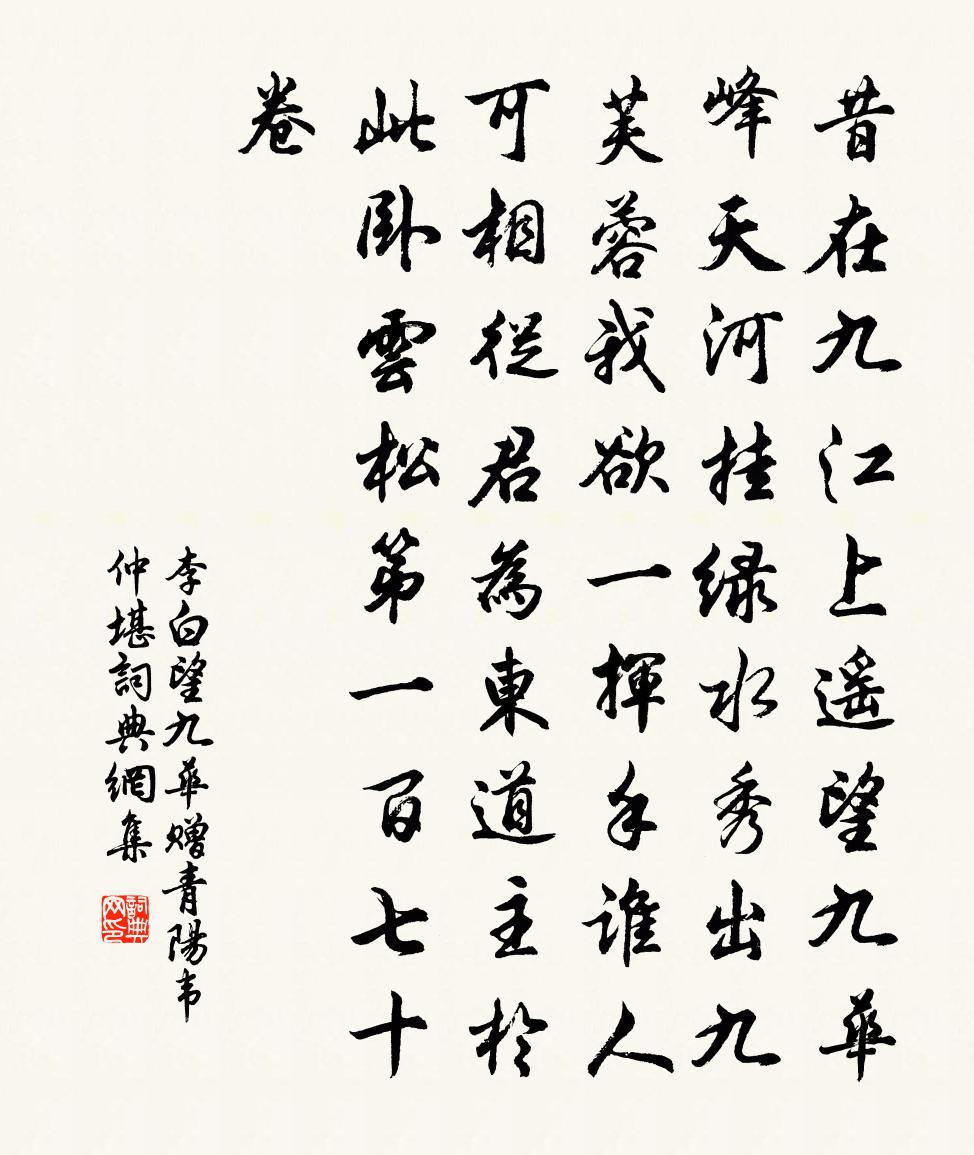 昔在九江上遥望九華
峰天河挂緑水秀出九
芙蓉我欲一揮手誰人
可相從君為東道主於
此卧雲松第一百七十
卷
李白望九華赠青陽韦
仲堪詞典網集
詞典网印